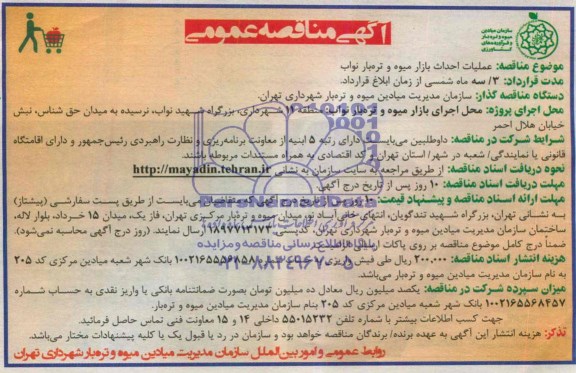 آگهی مناقصه عمومی
سازمان میادین
میوه و تره‌بار
و فرآورده‌های
کشاورزی
موضوع مناقصه: عملیات احداث بازار میوه و تره‌بار نواب
مدت قرارداد: ۳/ سه ماه شمسی از زمان ابلاغ قرارداد.
دستگاه مناقصه گذار: سازمان مدیریت میادین میوه و تره‌بار شهرداری تهران.
محل اجرای پروژه: محل اجرای بازار میوه و تره‌بار نواب: منطقه شهرداری، بزرگراه شهید نواب، نرسیده به میدان حق شناس، نبش
خیابان هلال احمر
شرایط شرکت در مناقصه: داوطلبین می‌بایست دارای رتبه ۵ ابنیه از معاونت برنامه‌ریزی و نظارت راهبردی رئیس‌جمهور و دارای اقامتگاه
قانونی یا نمایندگی/ شعبه در شهر/ استان تهران و کد اقتصادی به همراه مستندات مربوطه باشند.
نحوه دریافت اسناد مناقصه: از طریق مراجعه به سایت سازمان به نشانی http://mayadin.tehran.ir
مهلت دریافت اسناد مناقصه: ۱۰ روز پس از تاریخ درج آگهی.
مهلت ارائه اسناد مناقصه و پیشنهاد قیمت: روز پس از تاریخ درج آگهی می‌بایست از طریق پست سفارشی (پیشتاز)
به نشانی تهران، بزرگراه شهید تندگویان، انتهای خانی آباد نو، میدان میوه و تره‌بار مرکزی تهران، فاز یک، میدان ۱۵ خرداد، بلوار لاله،
ساختمان سازمان مدیریت میادین میوه و تره‌بار شهرداری تهران، کدپستی ارسال نمایند. (روز درج آگهی محاسبه نمی‌شود).
ضمناً درج کامل موضوع مناقصه بر روی پاکات ارسالی الزامیست.
هزینه انتشار اسناد مناقصه: ۲۰۰.۰۰۰ ریال طی فیش واریزی بانک شهر شعبه میادین مرکزی کد ۲۰۵
به نام سازمان مدیریت میادین میوه و تره‌بار می‌باشد.
میزان سپرده شرکت در مناقصه: یکصد میلیون ریال معادل ده میلیون تومان بصورت ضمانتنامه بانکی یا واریز نقدی به حساب شماره
۱۰۰۲۱۶۵۵۶۸۴۵۷ بانک شهر شعبه میادین مرکزی کد ۲۰۵ بنام سازمان مدیریت میادین میوه و تره‌بار.
جهت کسب اطلاعات بیشتر با شماره تلفن ۵۵۰۱۵۲۳۲ داخلی ۱۴ و ۱۵ معاونت فنی تماس حاصل فرمائید.
تذکر: هزینه انتشار این آگهی به عهده برنده/ برندگان مناقصه خواهد بود و سازمان در رد یا قبول یک یا کلیه پیشنهادات مختار می‌باشد.
روابط عمومی و امور بین الملل سازمان مدیریت میادین میوه و تره‌بار شهرداری تهران
پایگاه اطلاع‌رسانی مناقصه و مزایده
۰۲۱-۸۸۳۴۹۶۷۰-۵